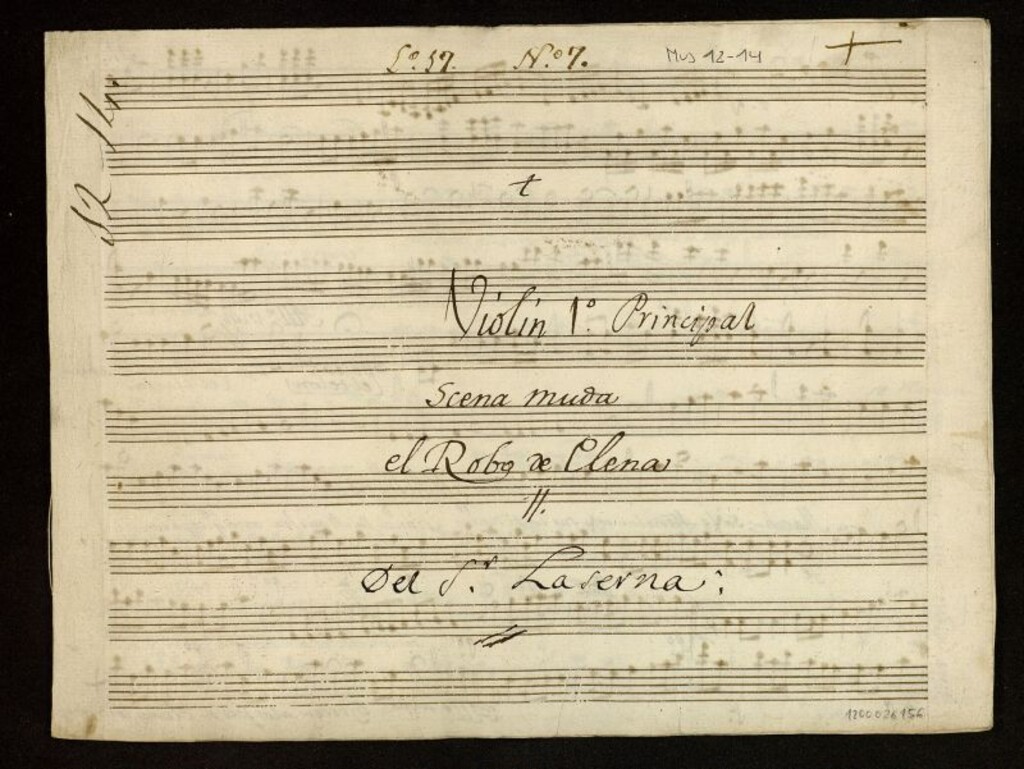 Lº. 57. N.º 7. Mus 12-14
t
Violin 1º. Principal
Scena muda
el Robo de Elena
Del S.r Laserna:
1200026156